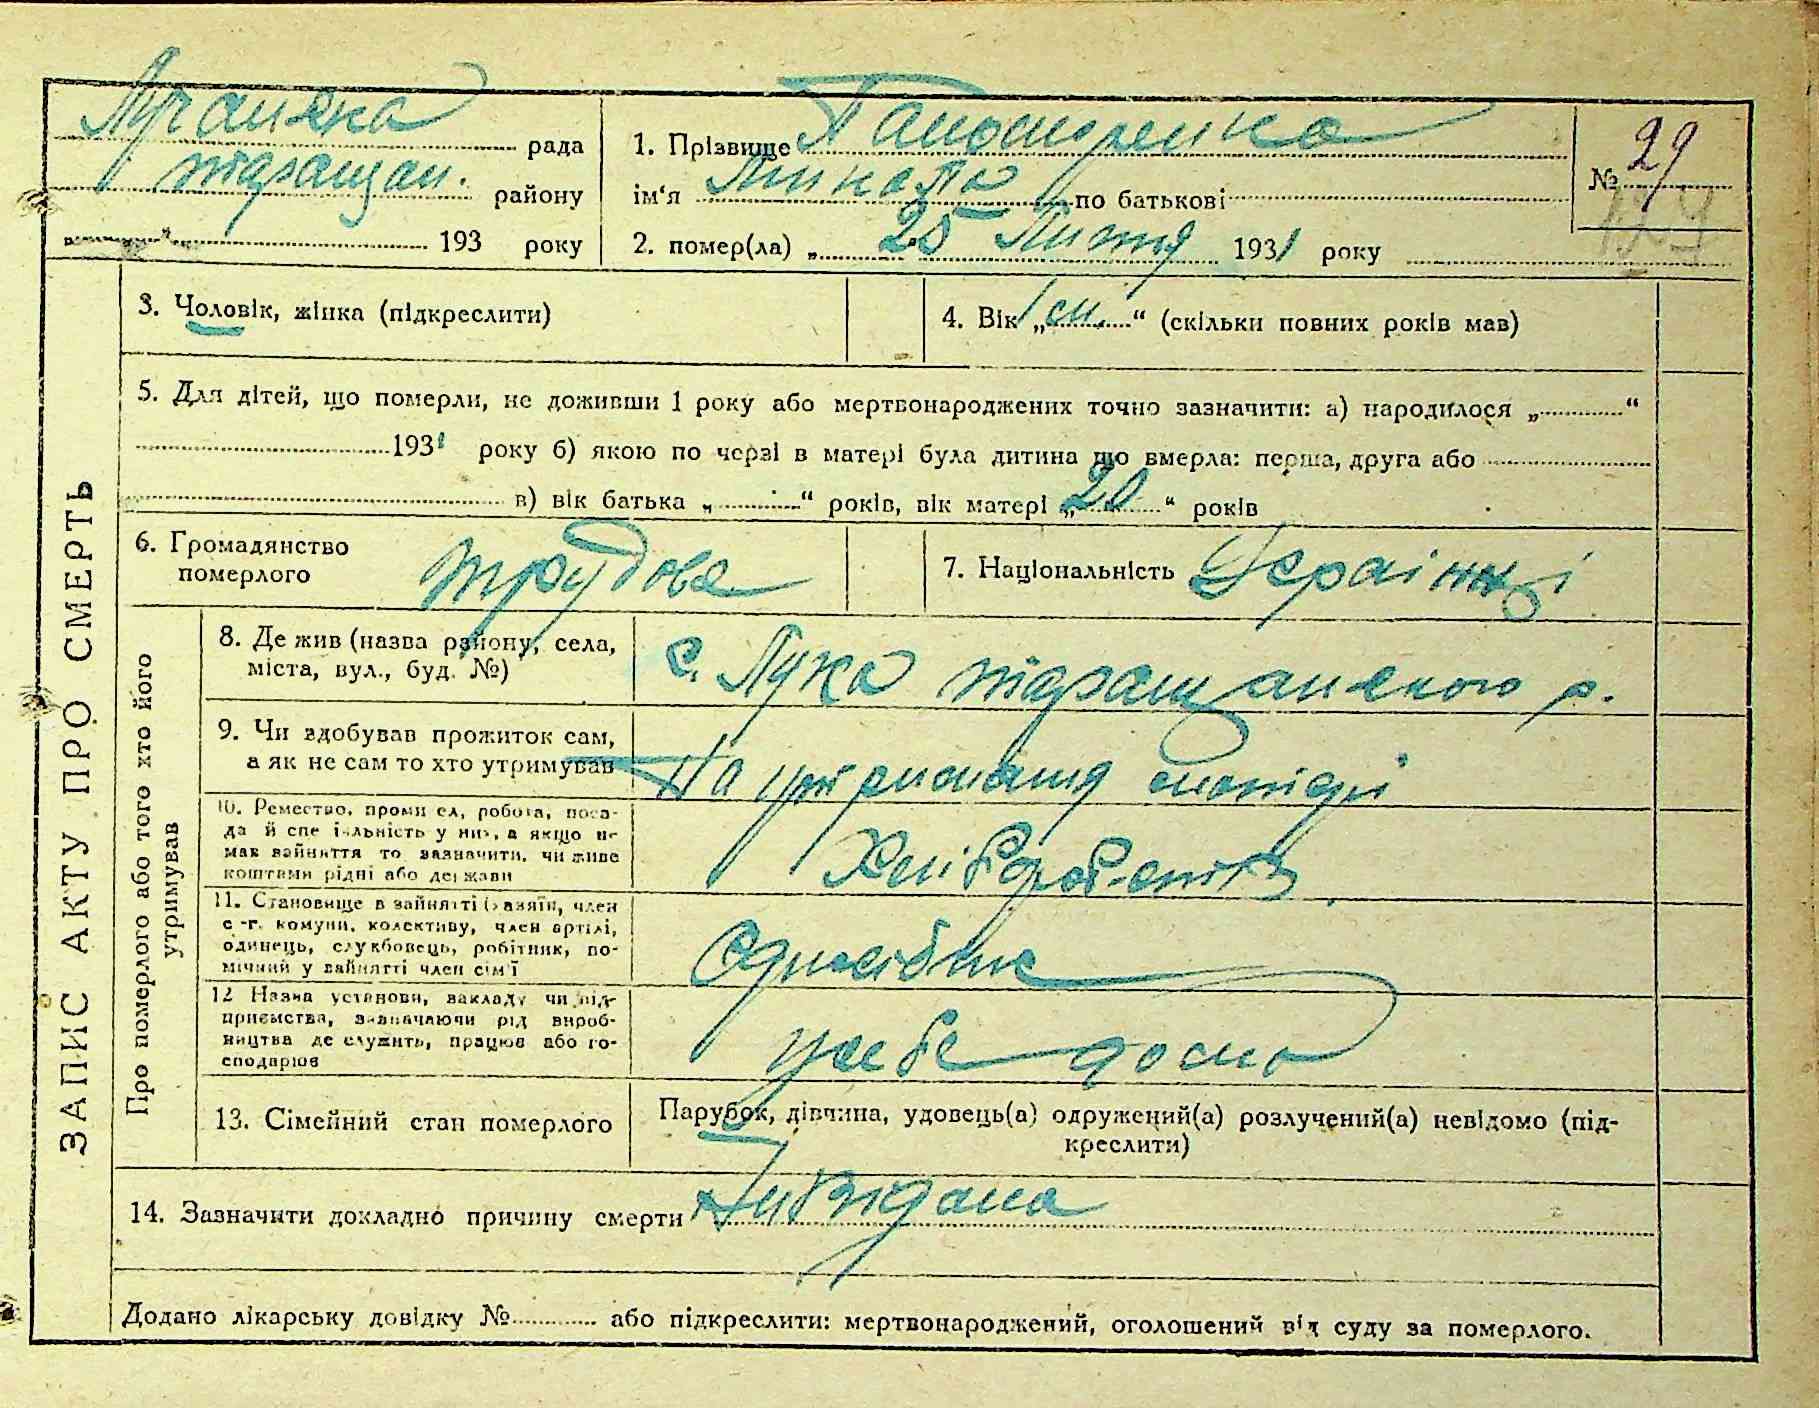 Лучанська рада
таращан. району
„ “ 193 року
1. Прізвище
ім‘я Микола по батькові
2. помер(ла) „ 25 Липня 1931 року
№ 29
129
ЗАПИС АКТУ ПРО СМЕРТЬ
3. Чоловік, жінка (підкреслити)
4. Вік „ 1 см. “ (скільки повних років мав)
5. Для дітей, що померли, не доживши 1 року або мертвонароджених точно зазначити: а) народилося „ “
1931 року б) якою по черзі в матері була дитина що вмерла: перша, друга або
в) вік батька „ “ років, вік матері „ 20 “ років
6. Громадянство
померлого
трудове
7. Національність Українці
Про померлого або того хто його
утримував
8. Де жив (назва району, села,
міста, вул., буд. №)
с. Лука таращанського р.
9. Чи здобував прожиток сам,
а як не сам то хто утримував
На утримання матері
10. Ремество, промисел, робота, поса-
да й спеціяльність у них, а якщо не
мав зайняття то зазначити, чи живе
коштами рідні або держави
Хліборобство
11. Становище в зайнятті (хазяїн, член
с.-г. комуни, колективу, член артілі,
одинець, службовець, робітник, по-
мічний у зайнятті член сім‘ї
Одноосібник
12 Назва установи, закладу чи під-
приємства, зазначаючи рід вироб-
ництва де служить, працює або го-
сподарює
у себе дома
13. Сімейний стан померлого
Парубок, дівчина, удовець(а) одружений(а) розлучений(а) невідомо (під-
креслити)
14. Зазначити докладно причину смерти
Додано лікарську довідку № або підкреслити: мертвонароджений, оголошений від суду за померлого.